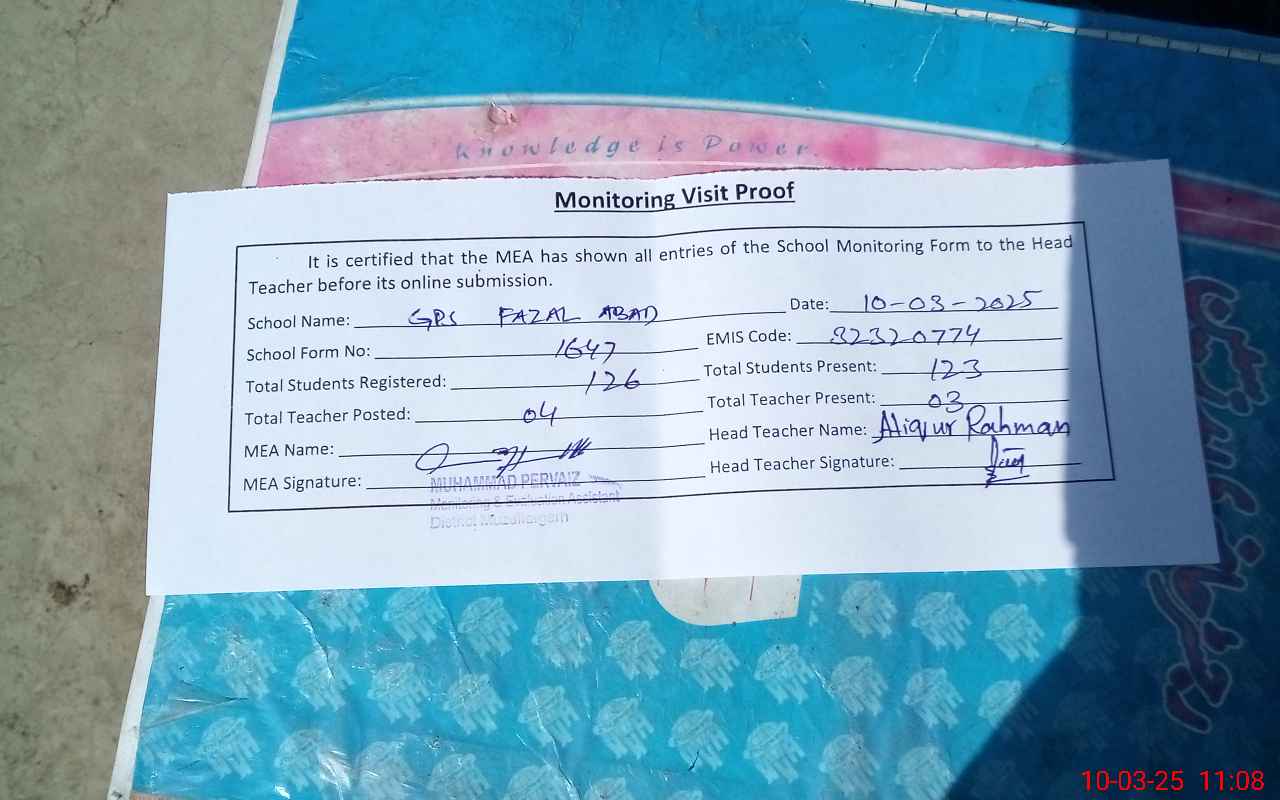 Knowledge is Power.
Monitoring Visit Proof
It is certified that the MEA has shown all entries of the School Monitoring Form to the Head
Teacher before its online submission.
School Name: GPS FAZAL ABAD Date: 10-03-2025
School Form No: 1647 EMIS Code: 32320774
Total Students Registered: 126 Total Students Present: 123
Total Teacher Posted: 04 Total Teacher Present: 03
MEA Name: Head Teacher Name: Atiqur Rahman
MEA Signature: Head Teacher Signature:
MUHAMMAD PERVAIZ
Monitoring & Evaluation Assistant
District Muzaffargarh
10-03-25 11:08